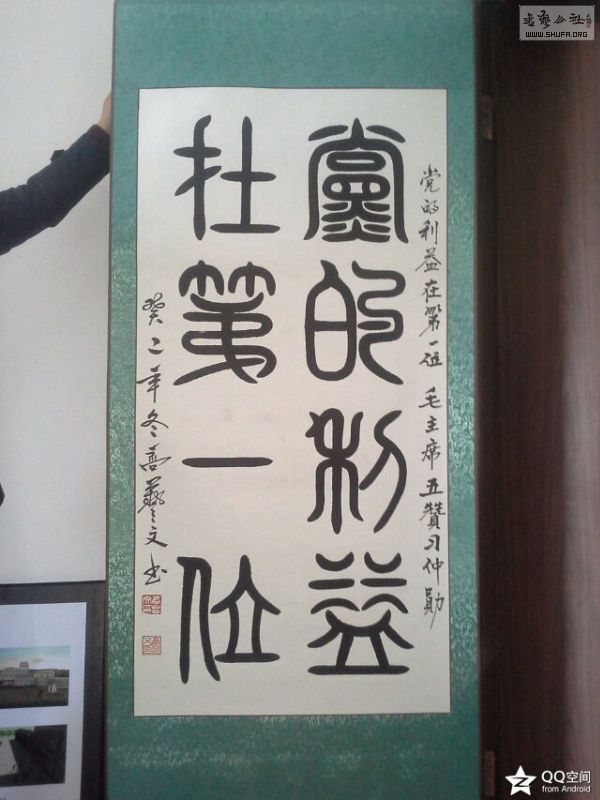 書藝公社
WWW.SHUFA.ORG
党的利益在第一位 毛主席五贊习仲勋
黨的利益
在第一位
癸巳年冬高藝文书
QQ空间
from Android